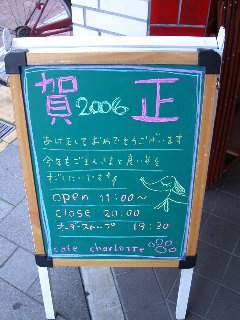 賀 2006 正
あけましておめでとうございます
今年もごまんぞくと良い年を
open 11:00~
close 20:00
オーダーストップ 19:30
cafe charlotte